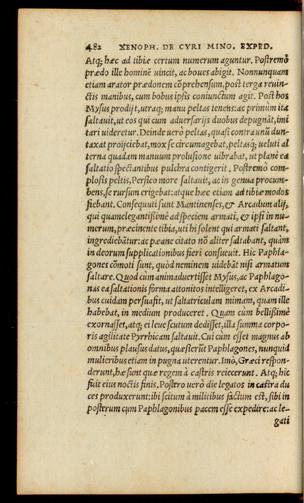 482 XENOPH. DE CYRI MINO. EXPED.
Atq; hæc ad tibiæ certum numerum aguntur. Postremò
prædo ille hominē uincit, ac boues abigit. Nonnunquam
etiam arator prædonem cōprehensum, post terga reuin-
ctis manibus, cum bobus ipsis coniunctum agit. Post hos
Mysus prodijt, utraq; manu peltas tenens: ac primùm ita
saltauit, ut eos qui cum aduersarijs duobus depugnāt, imi
tari uideretur. Deinde uerò peltas, quasi contra unū dun-
taxat proijciebat, mox se circumagebat, peltasq; ueluti al
terna quadam manuum prolusione uibrabat, ut planè ea
saltatio spectantibus pulchra contigerit. Postremò com-
plosis peltis, Persico more saltauit, ac in genua procum-
bens, se rursum erigebat: atque hæc etiam ad tibiæ modos
fiebant. Consequuti sunt Mantinenses, & Arcadum alij,
qui quàm elegantißimè ad speciem armati, & ipsi in nu-
merum, præcinente tibia, uti hi solent qui armati saltant,
ingrediebātur: ac pæane citato nō aliter saltabant, quàm
in deorum supplicationibus fieri consueuit. Hic Paphla-
gones cōmoti sunt, quòd neminem uidebāt nisi armatum
saltare. Quod cum animaduertisset Mysus, ac Paphlago-
nas ea saltationis forma attonitos intelligeret, ex Arcadi-
bus cuidam persuasit, ut saltatriculam mimam, quam ille
habebat, in medium produceret. Quam cùm bellißimè
exornasset, atq; ei leue scutum dedisset, illa summa corpo-
ris agilitate Pyrrhicam saltauit. Cui cùm esset magnus ab
omnibus plausus datus, quæsierūt Paphlagones, nunquid
mulieribus etiam in pugna uterentur. Imò, Græci respon-
derunt, hæ sunt quæ regem à castris reiecerunt. Atq; hic
fuit eius noctis finis. Postro uerò die legatos in castra du
ces produxerunt: ibi scitum à militibus factum est, sibi in
posterum cum Paphlagonibus pacem esse expedire: ac le-
gati